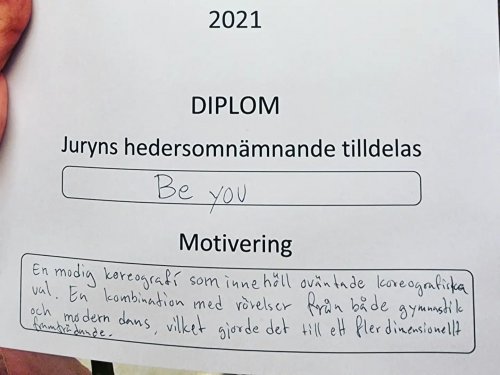 2021
DIPLOM
Juryns hedersomnämnande tilldelas
Be you
Motivering
En modig koreografi som innehöll oväntade koreografiska
val. En kombination med rörelser från både gymnastik
och modern dans, vilket gjorde det till ett flerdimensionellt
framträdande.